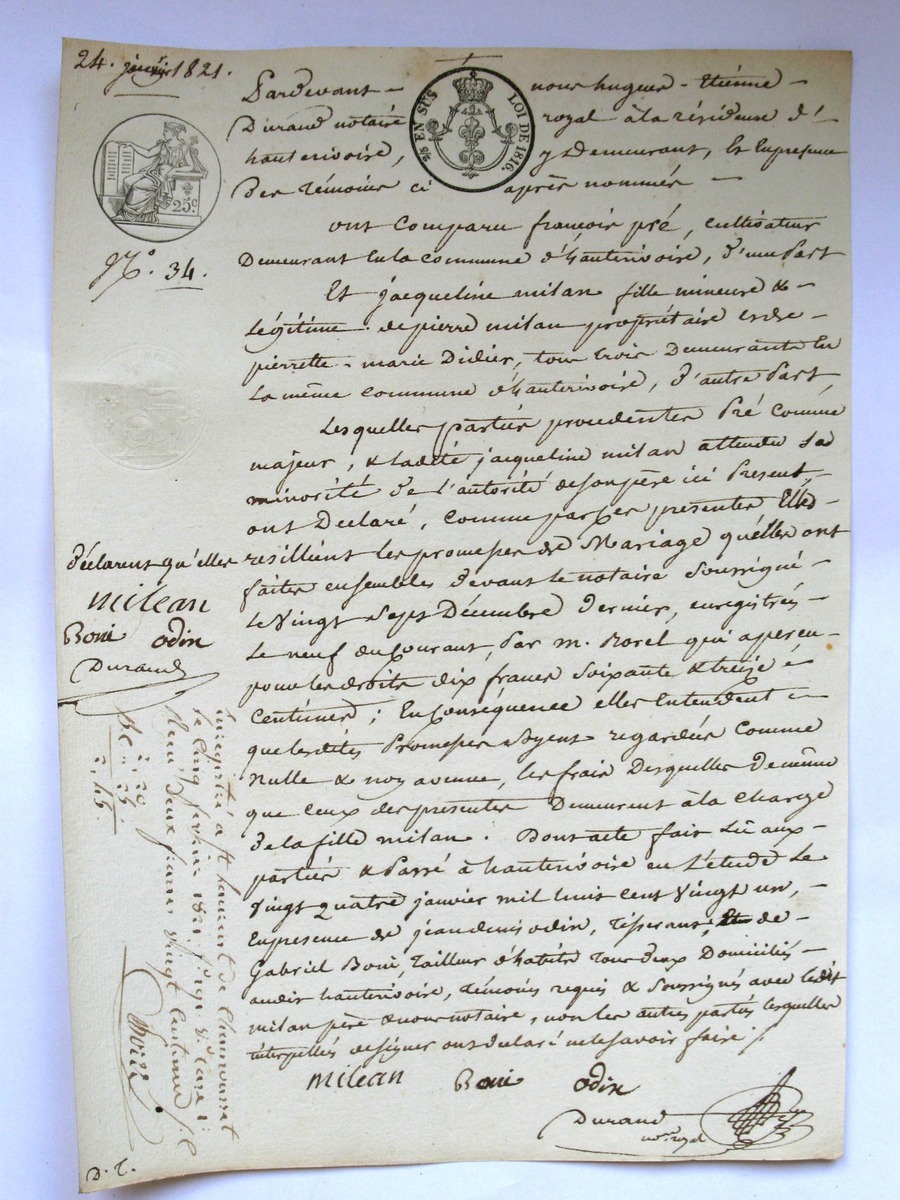 24. janvier 1821.
Pardevant - nous hugues - Etienne -
Durand notaire royal à la résidense d'
hauterivoire, y Demeurant, & En presense
Des témoins ci après nommés -
2/5 EN SUS LOI DE 1816.
25c.
N.o 34.
ont Comparu françois pré, cultivateur
Demeurant En la commune d'hauterivoire, d'une Part
Et jacqueline milan fille mineure & -
Légitime de pierre milan propriétaire & de -
pierrette - marie Didier, tous trois Demeurants En
La même commune d'hauterivoire, d'autre Part,
Lesquelles parties procedentes Pré Comme
majeur, & ladite jacqueline milan attendu sa
minorité de l'autorité de son père ici Present,
ont Déclaré, comme par ces presentes Elles
resillient les promesses de Mariage qu'elles ont
faites ensembles devant le notaire soussigné -
Le Vingt Sept Décembre dernier, enregistrés -
Le neuf du Courant, Par m. Morel qui a perçu -
pour les droits dix francs soixante & treize
Centimes; En Conséquence elles Entendent
que lesdites Promesses soyent regardées comme
Nulle & non avenue, les frais Desquelles de même
que ceux des presentes Demeurent à la charge
de la fille milan. Dont acte fait Lû aux -
parties & Passé à hauterivoire en L'étude Le
Vingt quatre janvier mil huit cent Vingt un, -
En presence de jean denis odin, Tisserant, de -
Gabriel Boni, Tailleur d'habits tous deux Domiciliés -
audit hauterivoire, témoins requis & soussignés avec ledit
milan père & nous notaire, non les autres parties lesquelles
interpellés de signer ont déclaré ne le savoir faire /.
milean Boni odin
Durand
no.re royal
déclarent qu'elles
milean
Boni odin
Durand
Enregistré à St Laurent de Chamousset
le cinq février 1821
Reçu deux francs vingt centimes
2. 20
. 25.
2. 45
D. T.